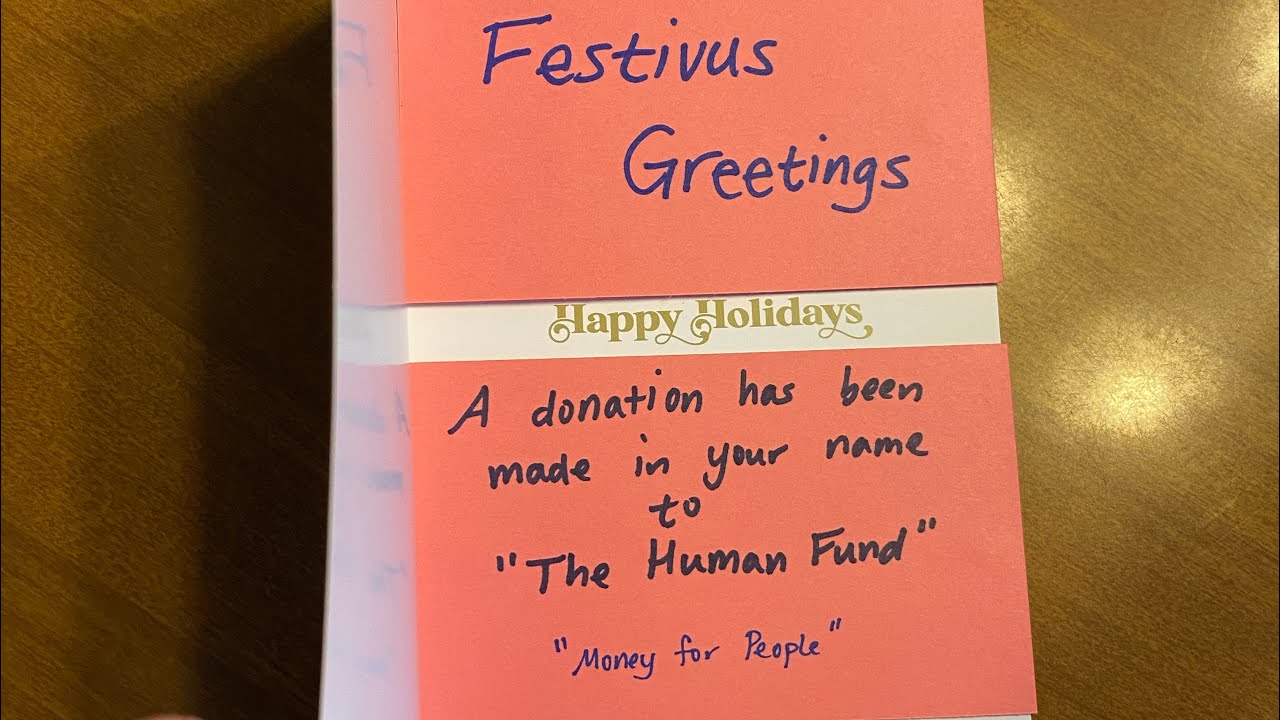 Festivus
Greetings
Happy Holidays
A donation has been
made in your name
to
"The Human Fund"
"Money for People"